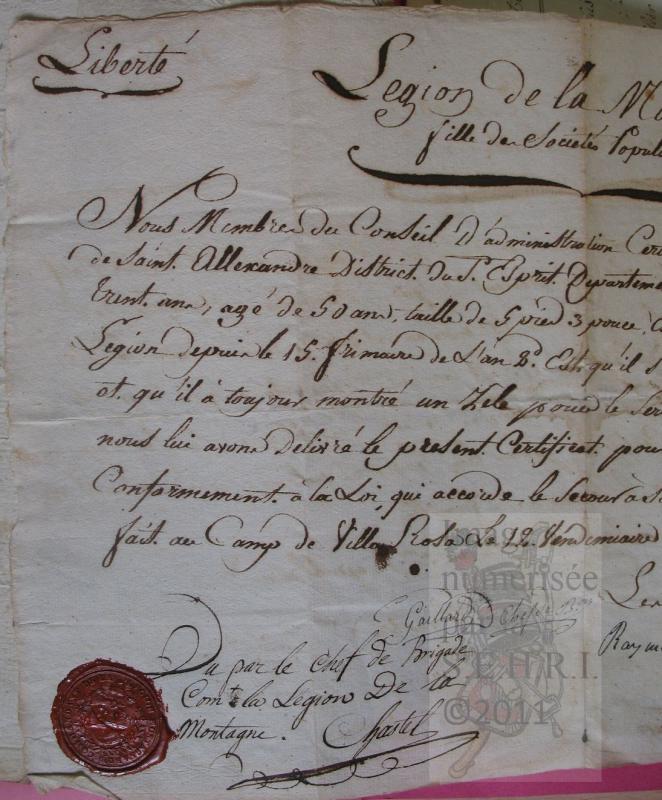 Liberté
Legion de la Mo
fille des Societés Popul
Nous Membres du Conseil D'administration Cer
de Saint. Allexandré District. du St. Esprit. Departeme
trent. ans, agé de 50 ans, taille de 5 pied 3 pouce,
Legion depuis le 15. frimaire de L'an 2d. Est qu'il s
et. qu'il à toujour montré un Zele pour le Ser
nous lui avons Delivré le present. Certificat. pour
Conformement. à la Loi, qui accorde le Secour à s
fait. au Camp de Villa Rosa Le 12. Vendimiaire
Gaillard Chef de Bon
Raymo
Vu par le chef de Brigade
Comt. la Legion De la
Montagne. Chastel
Image
numérisée
E.H.R.I.
©2011